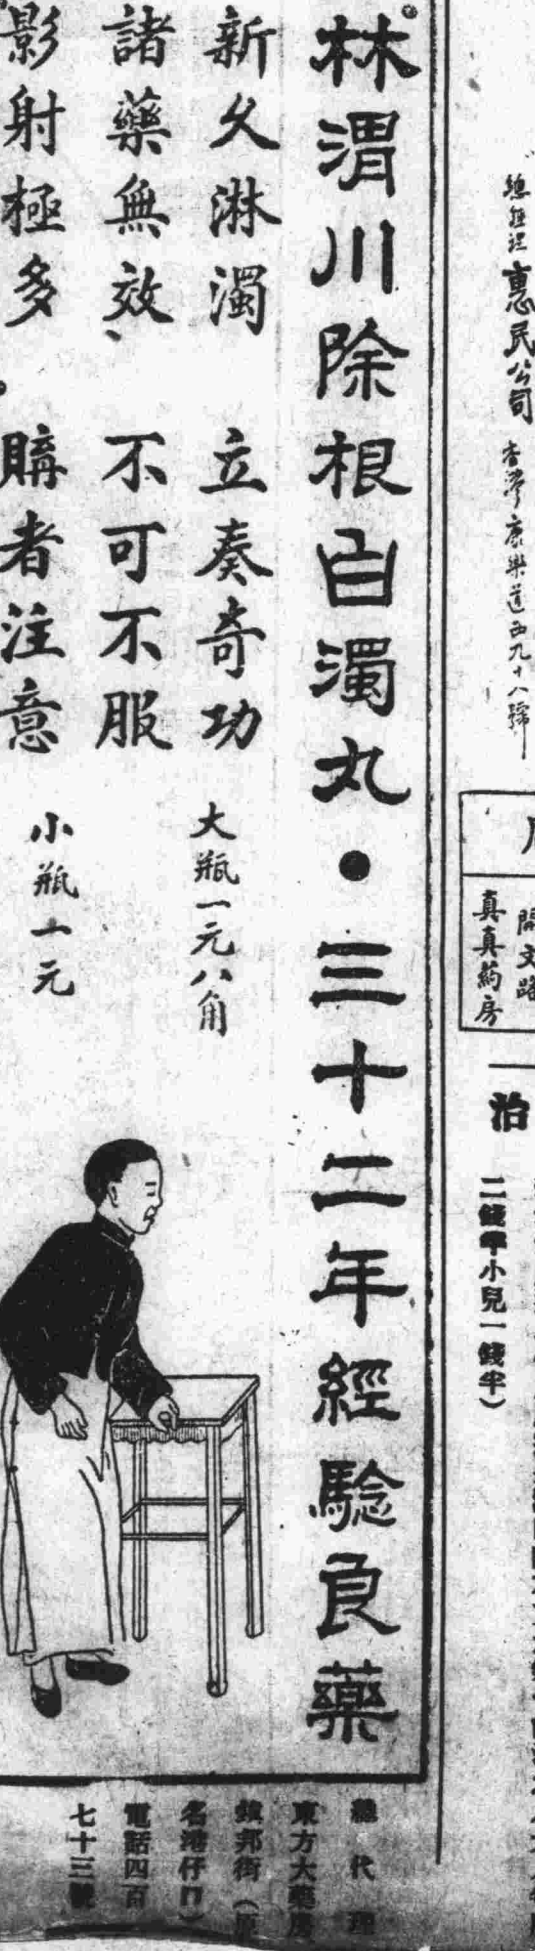 總經理惠民公司
香港康樂道西九十八號
開文路
真真葯房
治
二錢半小兒一錢半）
林渭川除根白濁丸●三十二年經驗良藥
新久淋濁 立奏奇功
諸藥無效、不可不服
影射極多 購者注意
大瓶一元八角
小瓶一元
總代理
東方大藥房
鎮邦街（原
名港仔口）
電話四百
七十三號